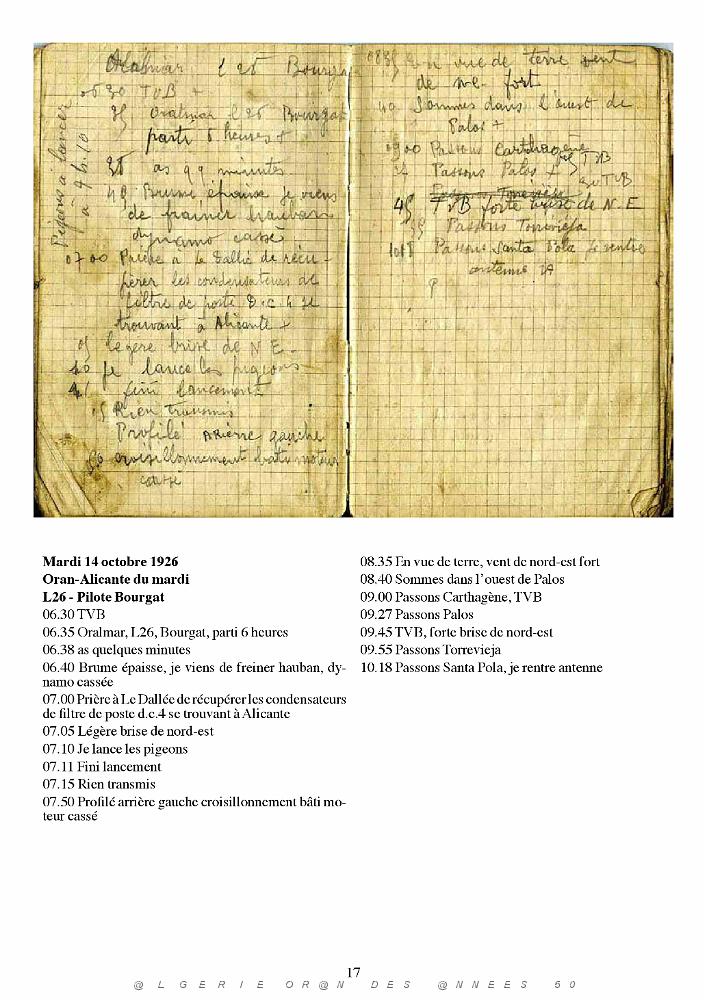 Oralmar L 26 Bourgat
0630 TVB +
35 Oralmar L 26 Bourgat
parti 6 heures +
38 as qq minutes
40 Brume épaisse je viens
de frainer hauban
dynamo cassé
0700 Prière à Le Dallée de récu-
pérer les condensateurs de
filtre de poste d.c.4 se
trouvant à Alicante +
05 legère brise de N E -
10 je lance les pigeons
11 fini lancement
15 Rien transmis
Profilé arrière gauche
50 croisillonnement bati moteur
casse
Pigeons à lancer
à 7h.10
0835 En vue de terre vent
de NE fort
40 Sommes dans l'ouest de
Palos +
0900 Passons Carthagène
TVB
Passons Palos +
TVB
45 TVB forte brise de N.E
55 Passons Torrevieja
1018 Passons Santa Pola je rentre
antenne
Mardi 14 octobre 1926
Oran-Alicante du mardi
L26 - Pilote Bourgat
06.30 TVB
06.35 Oralmar, L26, Bourgat, parti 6 heures
06.38 as quelques minutes
06.40 Brume épaisse, je viens de freiner hauban, dy-
namo cassée
07.00 Prière à Le Dallée de récupérer les condensateurs
de filtre de poste d.c.4 se trouvant à Alicante
07.05 Légère brise de nord-est
07.10 Je lance les pigeons
07.11 Fini lancement
07.15 Rien transmis
07.50 Profilé arrière gauche croisillonnement bâti mo-
teur cassé
08.35 En vue de terre, vent de nord-est fort
08.40 Sommes dans l'ouest de Palos
09.00 Passons Carthagène, TVB
09.27 Passons Palos
09.45 TVB, forte brise de nord-est
09.55 Passons Torrevieja
10.18 Passons Santa Pola, je rentre antenne
17
@ L G E R I E O R @ N D E S @ N N E E S 6 0